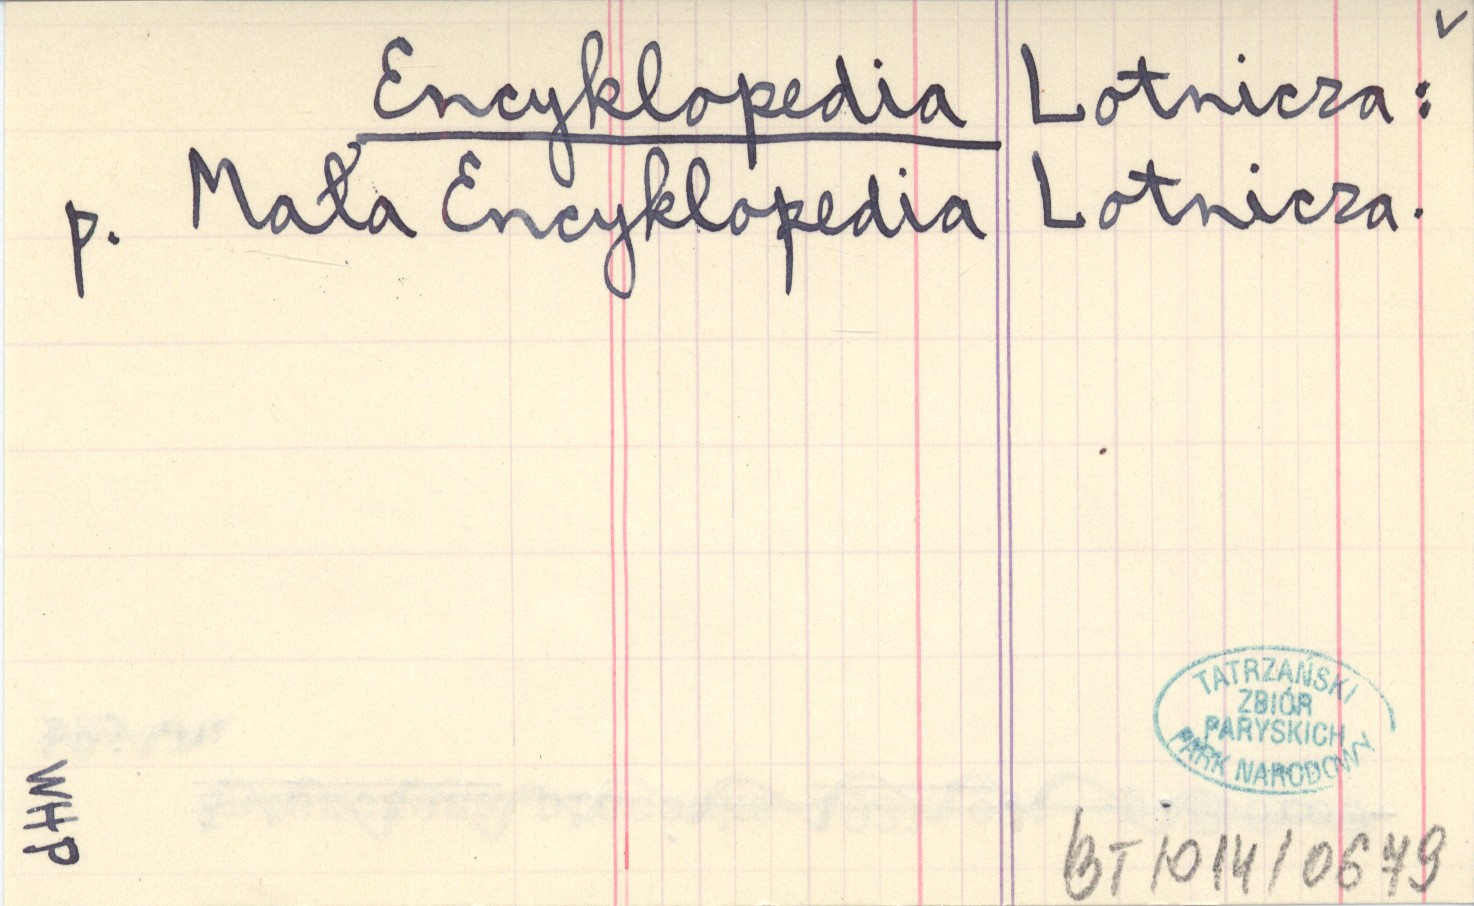 v
Encyklopedia Lotnicza:
p. Mała Encyklopedia Lotnicza.
TATRZAŃSKI
ZBIÓR
PARYSKICH
PARK NARODOWY
WHP
BT/014/0679